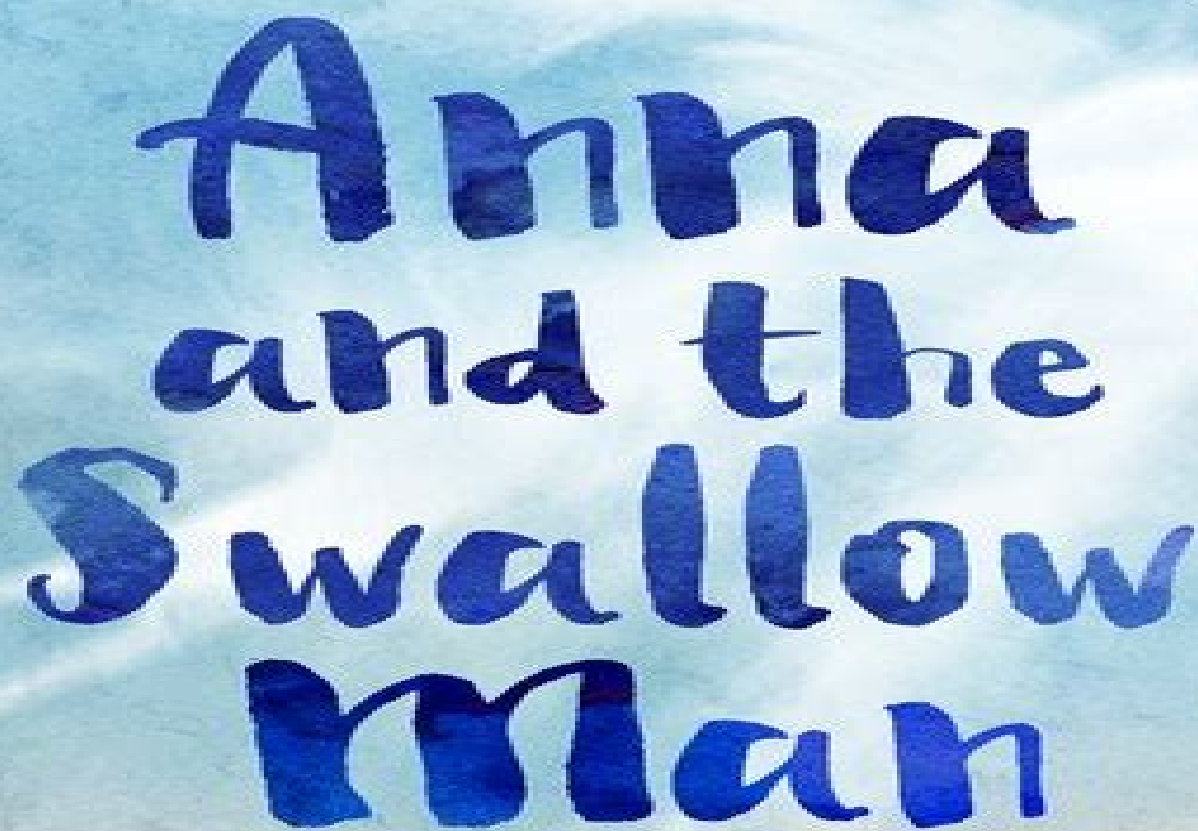 Anna
and the
Swallow
Man